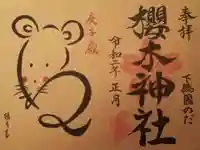 奉拝
下総国のだ
櫻木神社
令和二年 正月
庚子歳